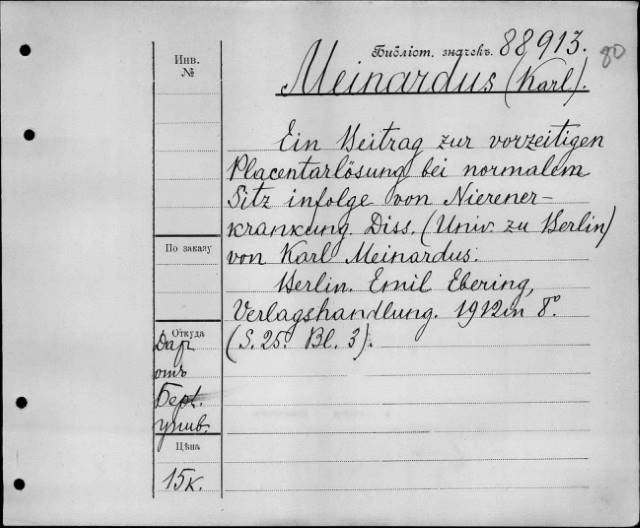 Библіот. значекъ. 88913.
80
Инв.
№
Meinardus (Karl).
Ein Beitrag zur vorzeitigen
Placentarlösung bei normalem
Sitz infolge von Nierener-
krankung. Diss. (Univ. zu Berlin)
По заказу
von Karl Meinardus.
Berlin. Emil Ebering,
Verlagshandlung. 1912 in 8°
Откуда
(S. 25. Bl. 3).
Дар
отъ
Берл.
унив.
Цѣна
15 к.